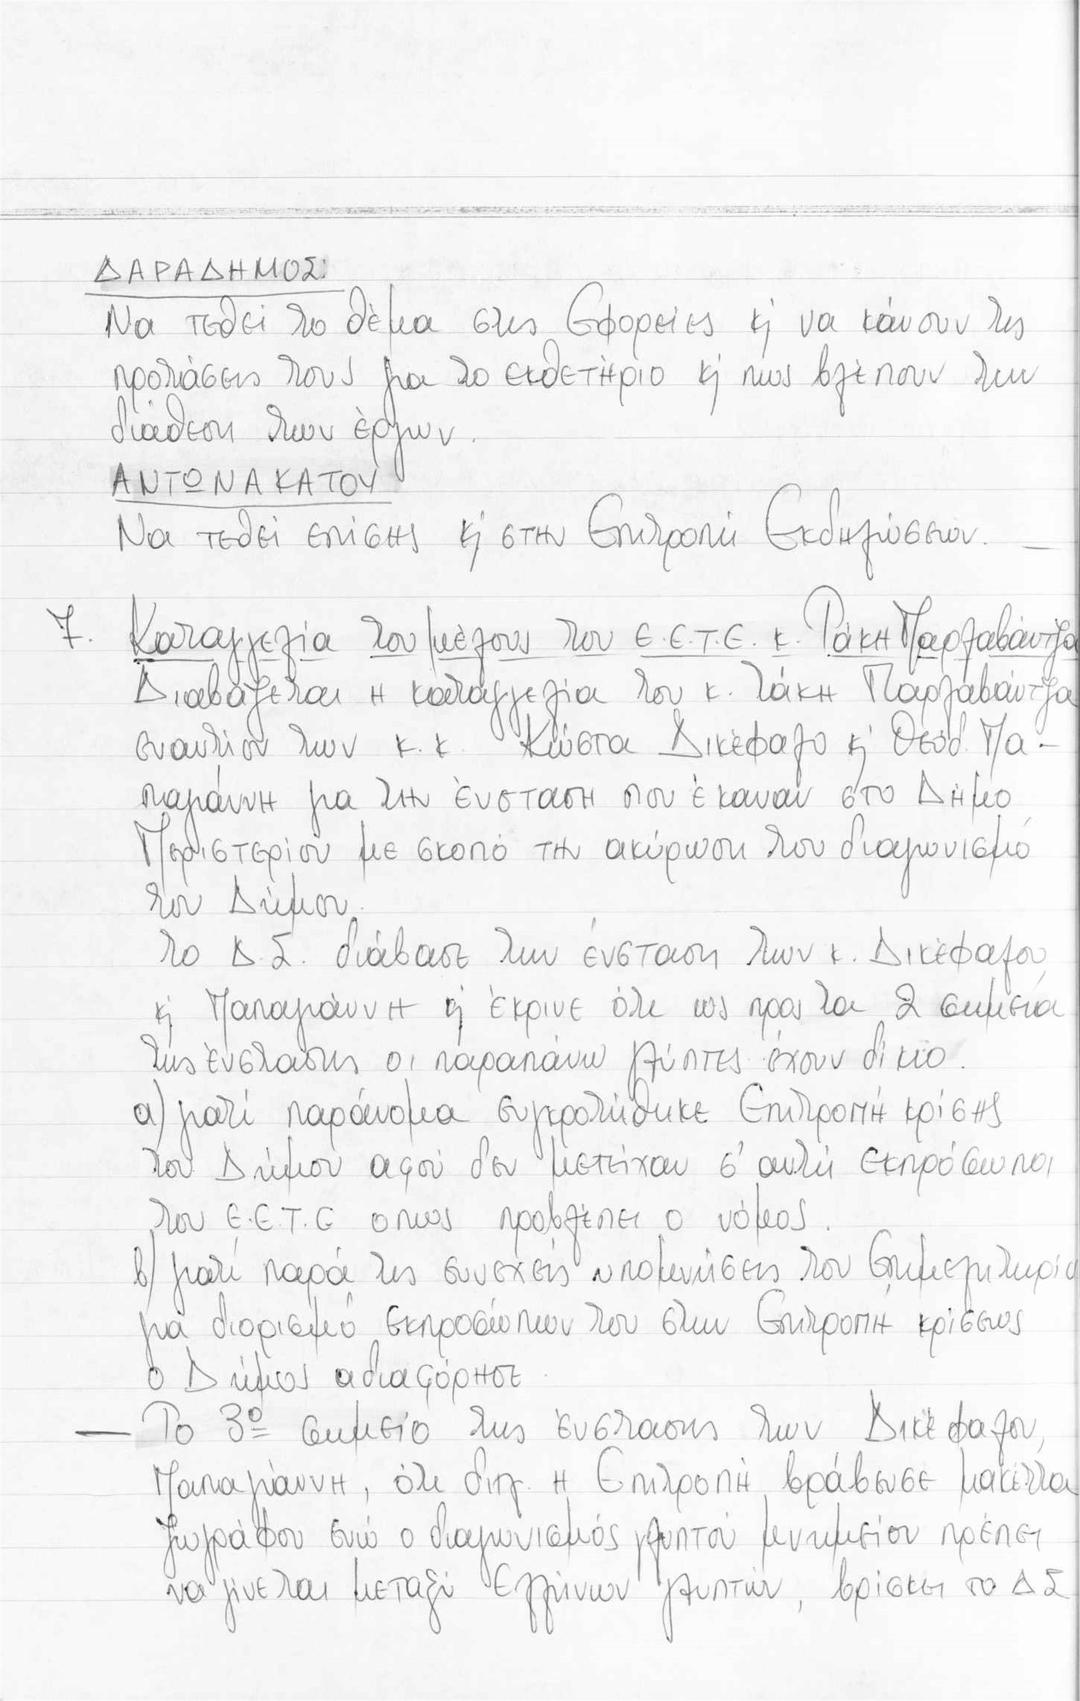 ΔΑΡΑΔΗΜΟΣ:
Να τεθεί το θέμα στις Εφορείες κ' να κάνουν τις
προτάσεις τους για το εκθετήριο κ' πως βλέπουν την
διάθεση των έργων.
ΑΝΤΩΝΑΚΑΤΟΥ
Να τεθεί επίσης κ' στην Επιτροπή Εκδηλώσεων. —
7. Καταγγελία του μέλους του Ε.Ε.Τ.Ε. κ. Τάκη Παρλαβάντζα
Διαβάζεται η καταγγελία του κ. Τάκη Παρλαβάντζα
εναντίον των κ.κ. Κώστα Δικέφαλο κ' Θεόδ. Πα-
παγιάννη για την ένσταση που έκαναν στο Δήμο
Περιστερίου με σκοπό την ακύρωση του διαγωνισμό
του Δήμου.
Το Δ.Σ. διάβασε την ένσταση των κ. Δικέφαλου
κ' Παπαγιάννη κ' έκρινε ότι ως προς τα 2 σημεία
της ένστασης οι παραπάνω γλύπτες έχουν δίκιο.
α) γιατί παράνομα συγκροτήθηκε Επιτροπή κρίσης
του Δήμου αφού δεν μετείχαν σ' αυτή εκπρόσωποι
του Ε.Ε.Τ.Ε οπως προβλέπει ο νόμος.
β) γιατί παρά τις συνεχείς υπομνήσεις του Επιμελητηρίο
για διορισμό εκπροσώπων του στην Επιτροπή κρίσεως
ο Δήμος αδιαφόρησε.
— Το 3º σημείο της ένστασης των Δικέφαλου,
Παπαγιάννη, ότι δηλ. η Επιτροπή βράβευσε μακέττα
ζωγράφου ενώ ο διαγωνισμός γλυπτού μνημείου πρέπει
να γίνεται μεταξύ Ελλήνων γλυπτών, βρίσκει το Δ Σ